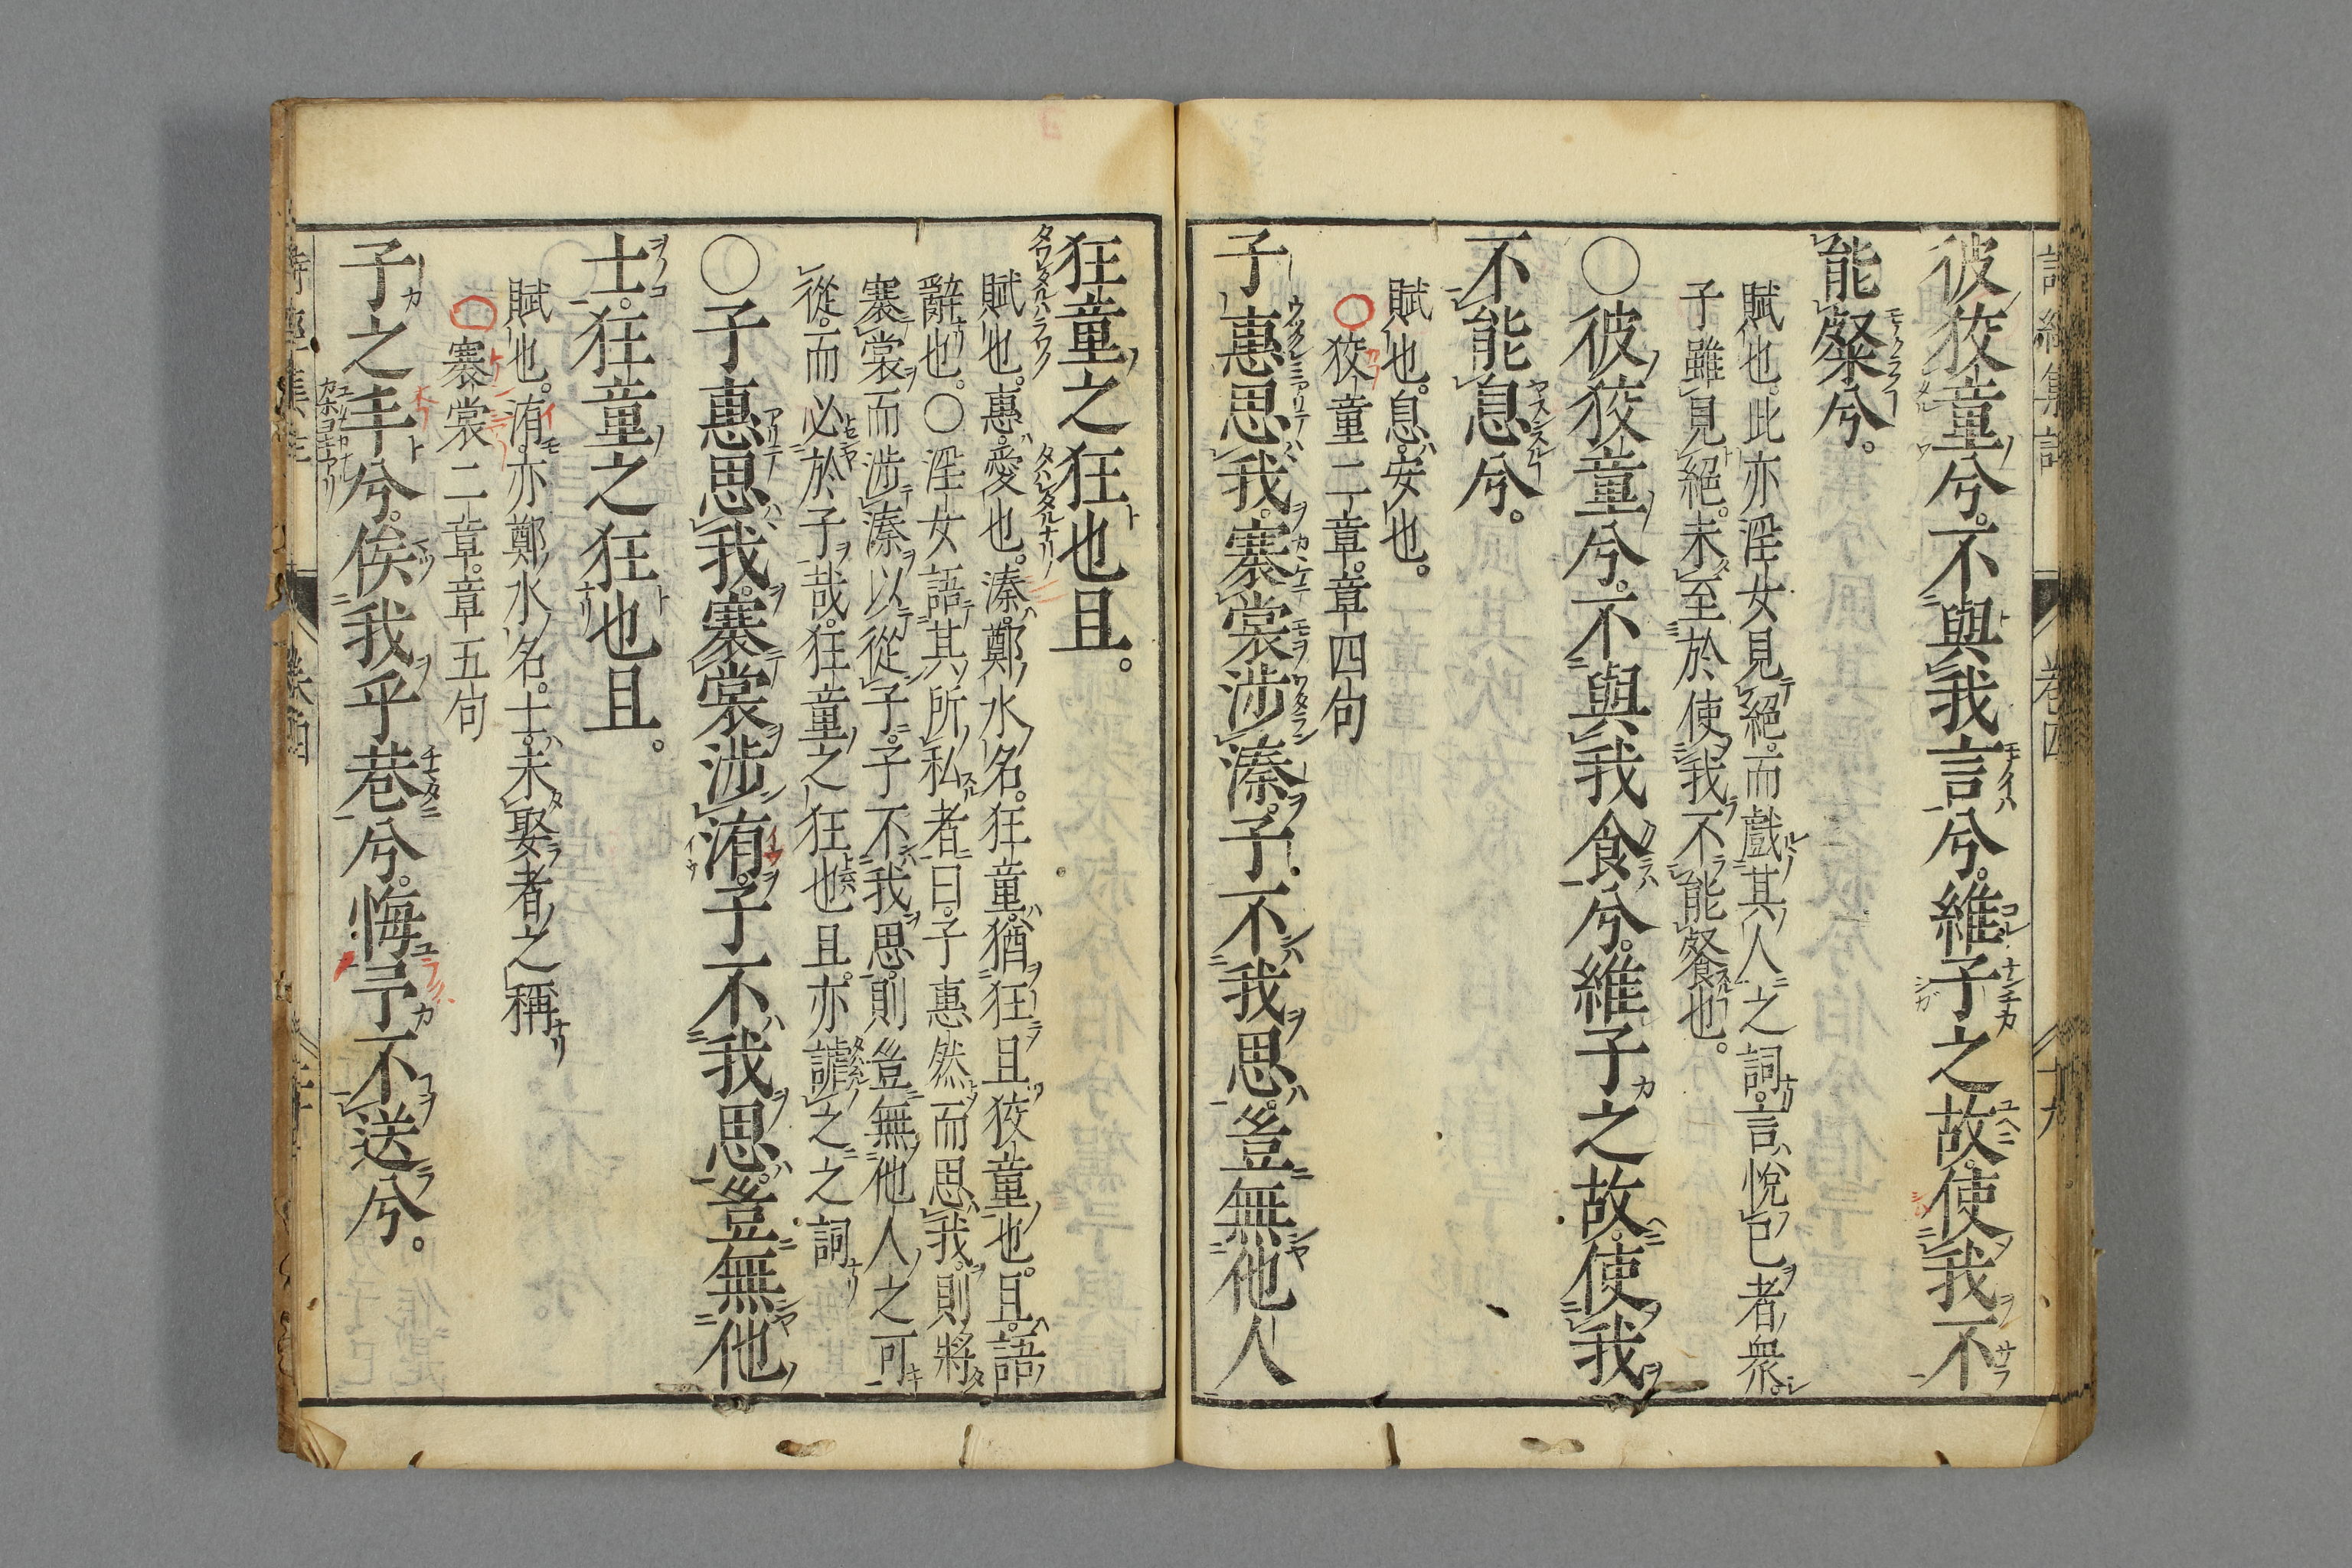 彼狡童兮。不與我言兮。維子之故。使我不
能粲兮。
賦也。此亦淫女見絕。而戲其人之詞。言悅己者衆。
子雖見絕。未至於使我不能餐也。
〇彼狡童兮。不與我食兮。維子之故。使我
不能息兮。
賦也。息。安也。
狡童二章。章四句
子惠思我。褰裳涉溱。子不我思。豈無他人
狂童之狂也且。
賦也。惠。愛也。溱。鄭水名。狂童。猶狂且狡童也。且。語
辭也。〇淫女語其所私者曰。子惠然而思我。則將
褰裳而涉溱以從子。子不我思。則豈無他人之可
從。而必於子哉。狂童之狂也且。亦謔之之詞
〇子惠思我。褰裳涉洧。子不我思。豈無他
士。狂童之狂也且。
賦也。洧。亦鄭水名。士。未娶者之稱
褰裳二章。章五句
子之丰兮。俟我乎巷兮。悔予不送兮。